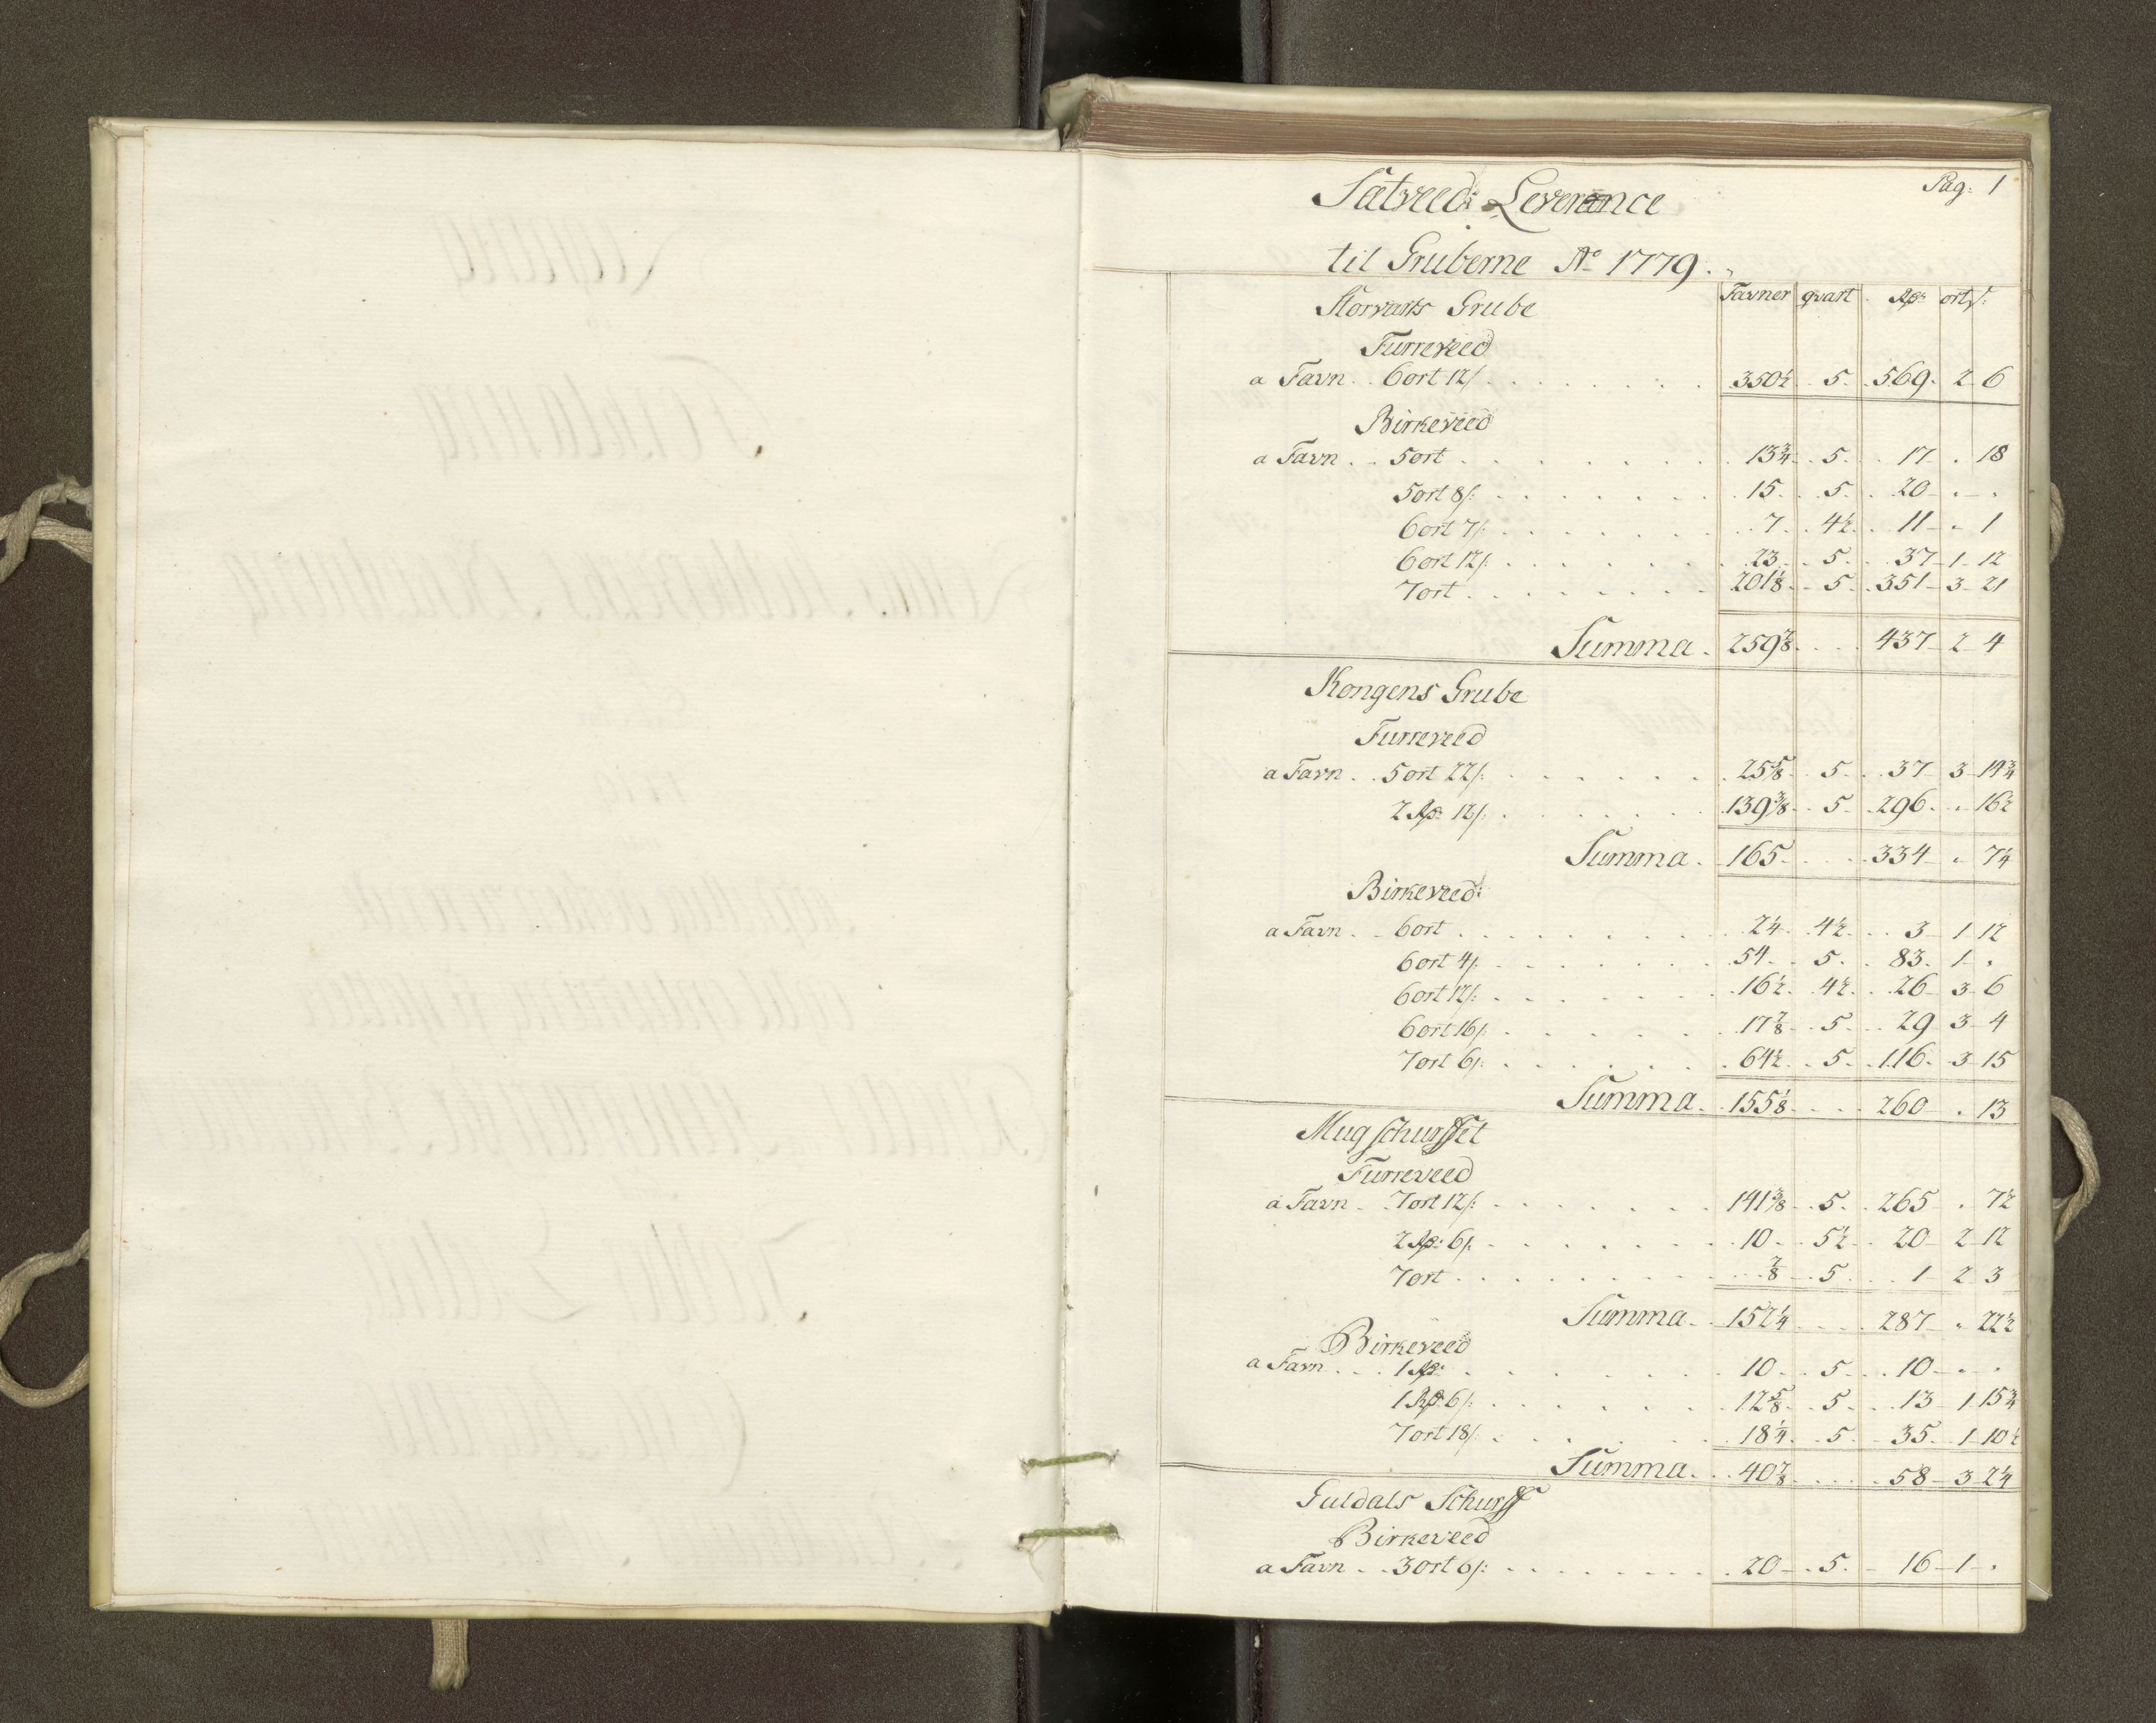 Pag: 1
Sætveeds Leverance
til Gruberne Aº 1779.
Favner qvart. Rdr ort ß:
Storvarts Grube
Furreveed
a Favn . . 6 ort 12ß . . . 350½ . 5 . 569 . 2 - 6
Birkeveed
a Favn . . 5 ort . . . 13¾ . 5 . 17 . 18
5 ort 8ß: . . . 15 . 5 . 20 - . - .
6 ort 7ß: . . . 7 . 4½ . 11 - . 1
6 ort 12ß: . . . 23 . 5 . 37 - 1 - 12
7 ort . . . 201⅛ . 5 . 351 - 3 - 21
Summa . 259⅞ . . . 437 - 2 4
Kongens Grube
Furreveed
a Favn . . 5 ort 22ß: . . . 25⅝ . 5 . 37 - 3 - 19¾
2 Rdr 12ß: . . . 139⅜ . 5 . 296 . . 16½
Summa . 165 . . . 334 - . 7¼
Birkeveed:
a Favn . . 6 ort . . . 2¼ . 4½ . 3 - 1 12
6 ort 4ß: . . . 54 . 5 . 83 . 1 - .
6 ort 12ß: . . . 16½ . 4½ . 26 - 3 - 6
6 ort 16ß: . . . 17⅞ . 5 . 29 - 3 - 4
7 ort 6ß: . . . 64½ . 5 . 116 . 3 - 15
Summa . 155⅛ . . . 260 - . 13
Mugschurffet
Furreveed
a Favn . . 7 ort 12ß: . . . 141⅜ . 5 . 265 . 7½
2 Rdr 6ß: . . . 10 . 5½ . 20 - 2 - 12
7 ort . . . ⅞ . 5 . 1 - 2 - 3
Summa . 152¼ . . . 287 - . 22½
Birkeveed
a Favn . . . 1 Rdr . . . 10 . 5 . 10 - . .
1 Rdr 6ß: . . . 12⅝ . 5 . 13 - 1 15¾
7 ort 18ß: . . . 18¼ . 5 . 35 - 1 - 10½
Summa . 40⅞ . . . 58 - 3 - 2¼
Guldals Schurff
Birkeveed
a Favn . . 3 ort 6ß: . . . 20 - 5 - 16 - 1 - .